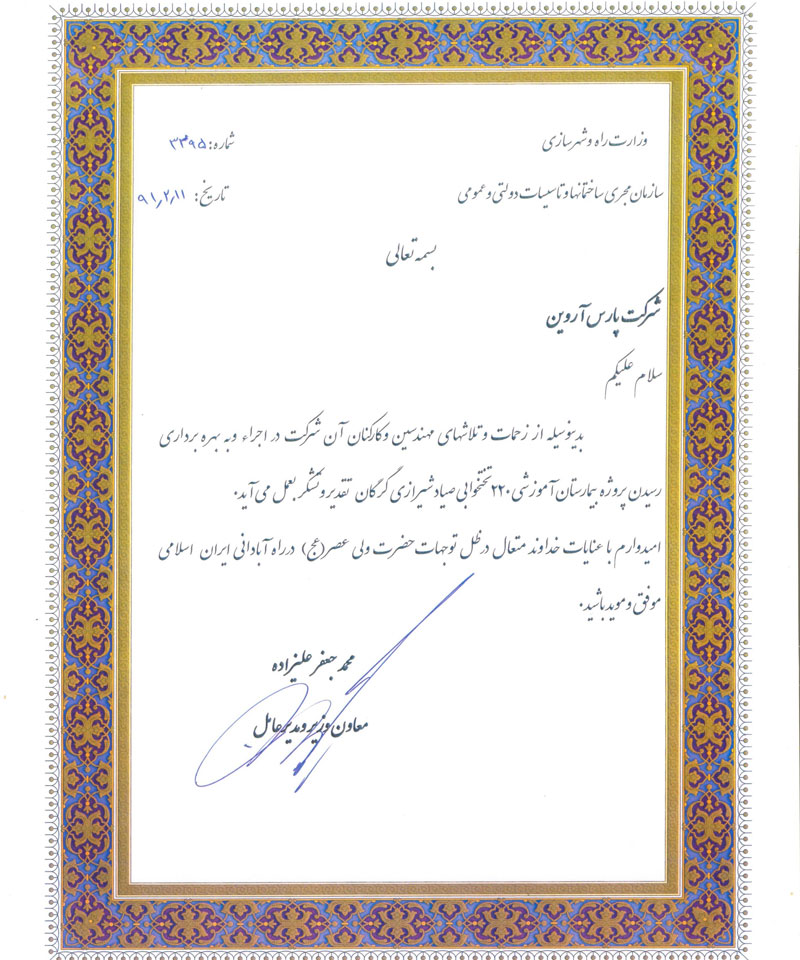 وزارت راه و شهرسازی
شماره: ۳۳۹۵
سازمان مجری ساختمانها و تاسیسات دولتی و عمومی
تاریخ: ۹۱٫۲٫۱۱
بسمه تعالی
شرکت پارس آروین
سلام علیکم
بدینوسیله از زحمات و تلاشهای مهندسین و کارکنان آن شرکت در اجراء وبه بهره برداری
رسیدن پروژه بیمارستان آموزشی ۲۲۰ تختخوابی صیاد شیرازی گرگان تقدیر و تشکر بعمل می آید.
امیدوارم با عنایات خداوند متعال در ظل توجهات حضرت ولی عصر (عج) در راه آبادانی ایران اسلامی
موفق و موید باشید.
محمد جعفر علیزاده
معاون وزیر و مدیر عامل